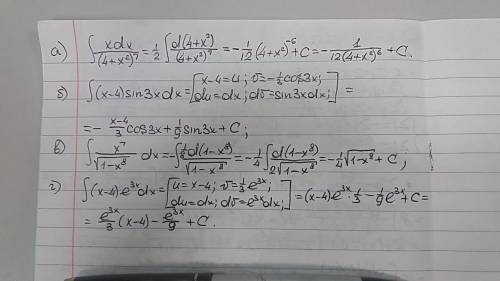 а) ∫ xdx/(4+x²)⁷ = 1/2 ∫ d(4+x²)/(4+x²)⁷ = -1/12 (4+x²)⁻⁶ + C = - 1/(12(4+x²)⁶) + C.
б) ∫(x-4)sin3xdx = [x-4=u; v=-1/3cos3x; du=dx; dv=sin3xdx;] =
= - (x-4)/3 cos3x + 1/9 sin3x + C;
в) ∫ x⁷/√(1-x⁸) dx = -∫ 1/8 d(1-x⁸)/√(1-x⁸) = -1/4 ∫ d(1-x⁸)/(2√(1-x⁸)) = -1/4 √(1-x⁸) + C;
г) ∫(x-4)e³ˣdx = [u=x-4; v=1/3 e³ˣ; du=dx; dv=e³ˣdx;] = (x-4)e³ˣ·1/3 - 1/9 e³ˣ + C =
= e³ˣ/3 (x-4) - e³ˣ/9 + C.